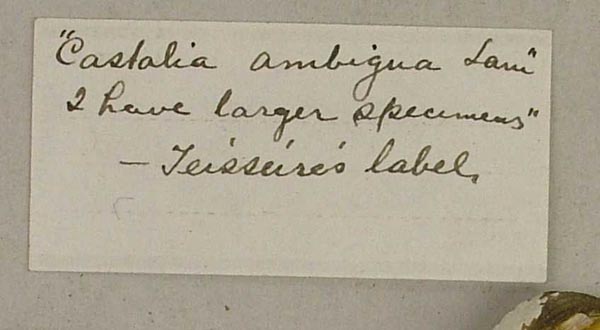 "Castalia ambigua Lam"
I have larger specimens"
— Teisseire's label.